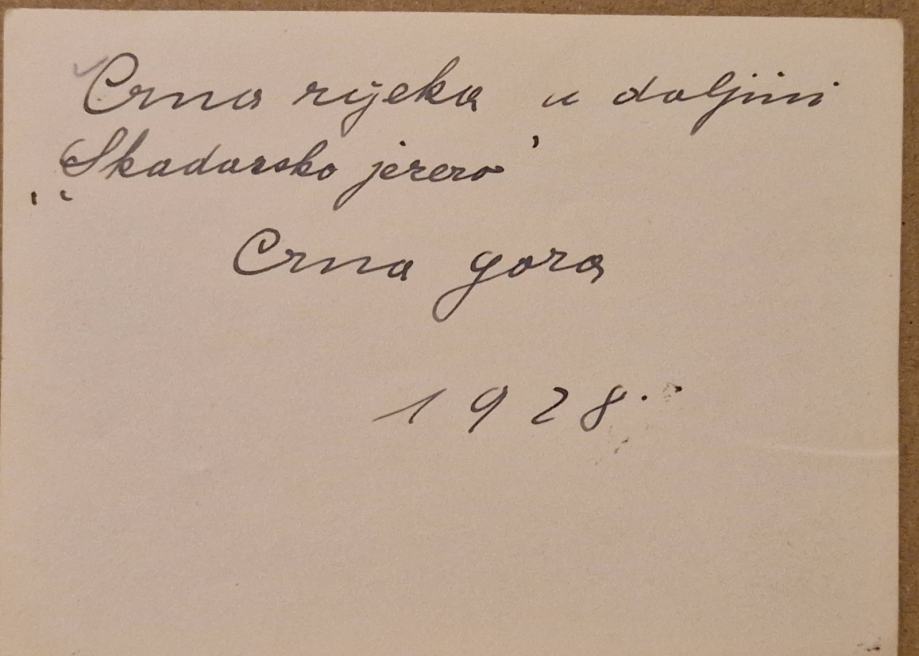 Crna rijeka u daljini
„Skadarsko jezero”
Crna gora
1928.